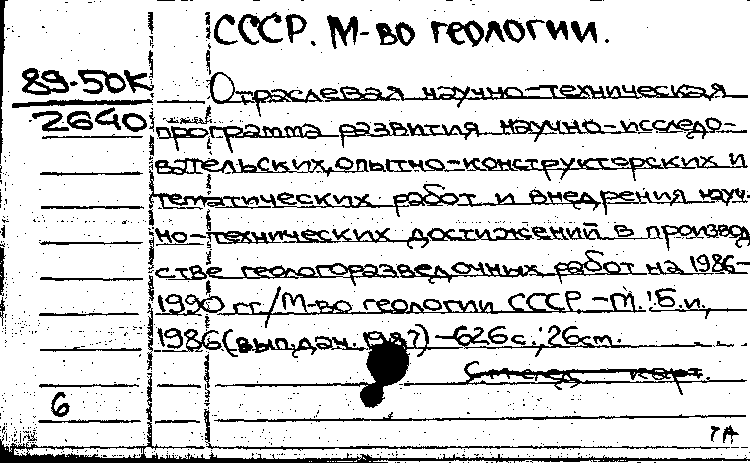 СССР. М-во геологии.
89-50К
2640
Отраслевая научно-техническая
программа развития научно-исследо-
вательских, опытно-конструкторских и
тематических работ и внедрения науч-
но-технических достижений в производ
стве геологоразведочных работ на 1986-
1990 гг./М-во геологии СССР.-М.:Б.и.,
1986(вып.дан.1987)-626с.;26см.
См.след. карт.
6
7А